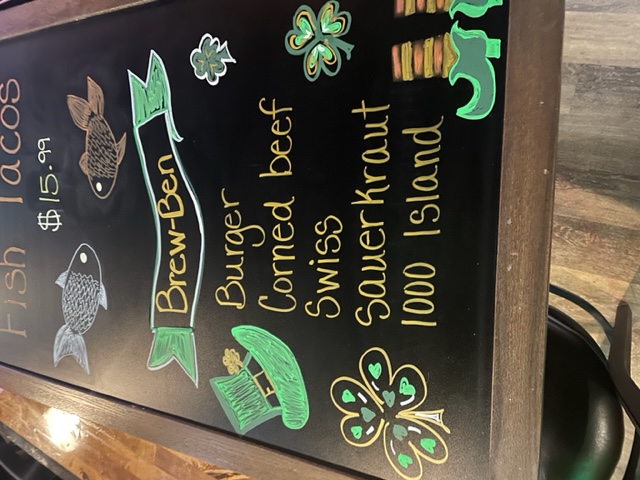 Fish Tacos
$15.99
Brew-Ben
Burger
Corned beef
Swiss
Sauerkraut
1000 Island